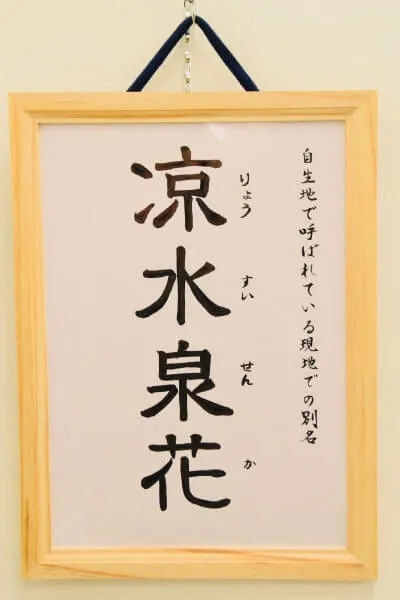 自生地で呼ばれている現地での別名
凉水泉花
りょう すい せん か